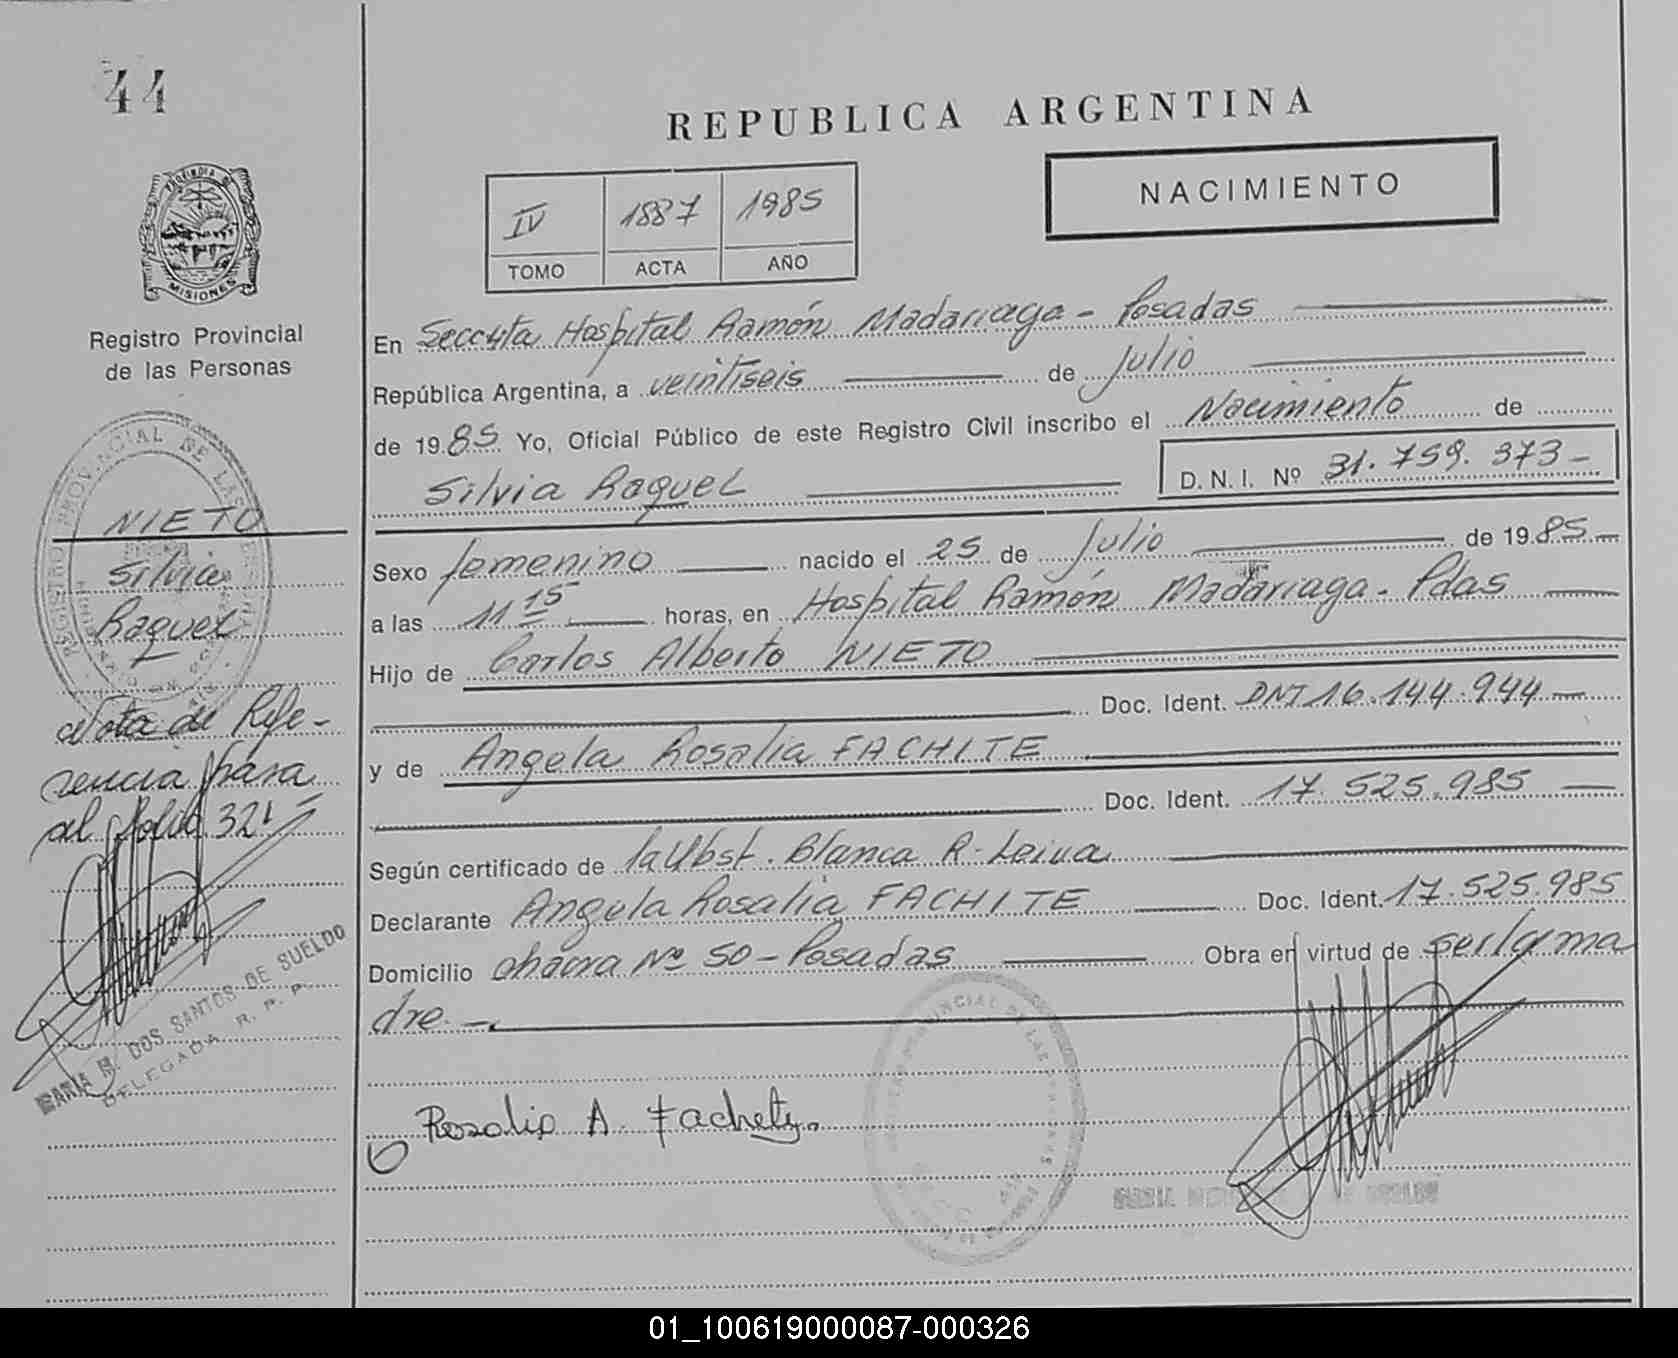 44
REPUBLICA ARGENTINA
NACIMIENTO
IV 1887 1985
TOMO ACTA AÑO
PROVINCIA DE
MISIONES
Registro Provincial
de las Personas
En Secc 4ta Hospital Ramón Madariaga - Posadas
República Argentina, a veintiseis de Julio
de 1985 Yo, Oficial Público de este Registro Civil inscribo el Nacimiento de
Silvia Raquel D.N.I. Nº 31.759.373-
Sexo femenino nacido el 25 de Julio de 1985
a las 11 15 horas, en Hospital Ramón Madariaga - Pdas
Hijo de Carlos Alberto NIETO
Doc. Ident. DNI 16.144.944
y de Angela Rosalia FACHITE
Doc. Ident. 17.525.985
Según certificado de la Obst. Blanca R. Leiva
Declarante Angela Rosalia FACHITE Doc. Ident. 17.525.985
Domicilio chacra Nº 50 - Posadas Obra en virtud de ser la ma
dre.
NIETO
Silvia
Raquel
Nota de Refe-
rencia para
al folio 321
MARIA M. DOS SANTOS DE SUELDO
DELEGADA R. P. P.
Rosalia A. Fachety.
01_100619000087-000326